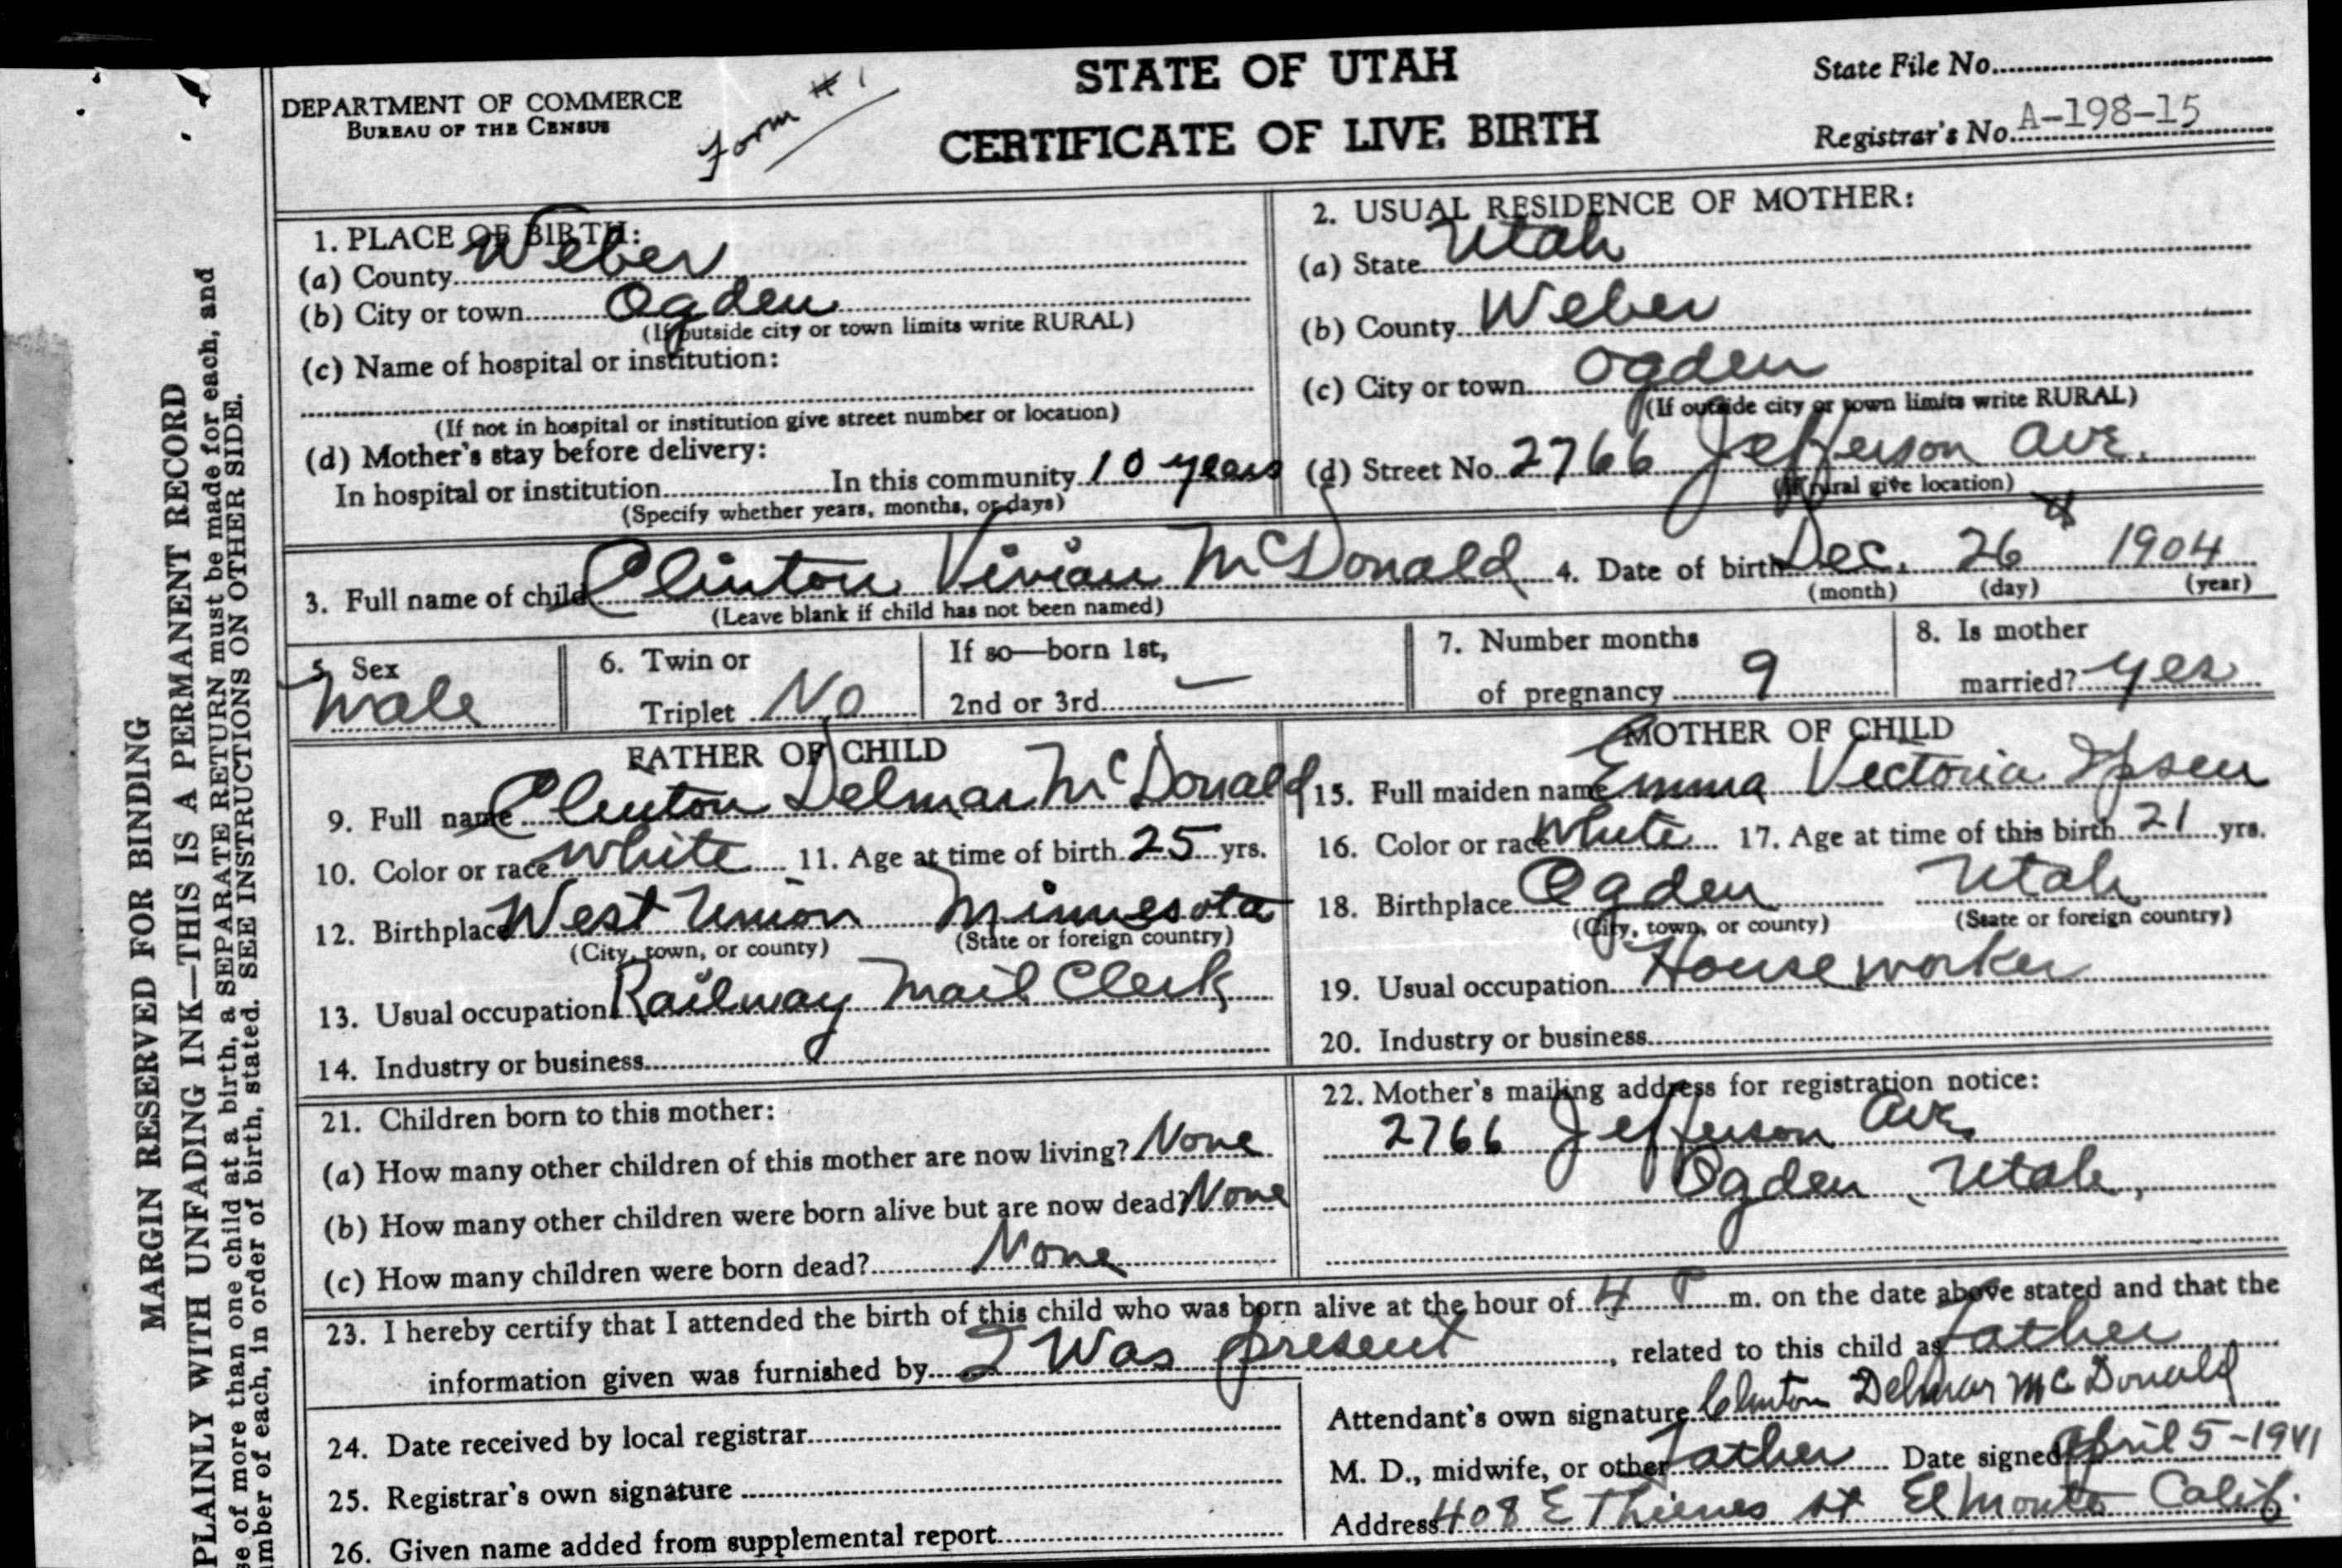 STATE OF UTAH
CERTIFICATE OF LIVE BIRTH
DEPARTMENT OF COMMERCE
BUREAU OF THE CENSUS
Form #1
State File No.
Registrar's No. A-198-15
1. PLACE OF BIRTH:
(a) County Weber
(b) City or town Ogden
(If outside city or town limits write RURAL)
(c) Name of hospital or institution:
(If not in hospital or institution give street number or location)
(d) Mother's stay before delivery:
In hospital or institution In this community 10 years
(Specify whether years, months, or days)
2. USUAL RESIDENCE OF MOTHER:
(a) State Utah
(b) County Weber
(c) City or town Ogden
(If outside city or town limits write RURAL)
(d) Street No. 2766 Jefferson Ave.
(If rural give location)
3. Full name of child Clinton Vivian McDonald 4. Date of birth Dec. 26 1904
(Leave blank if child has not been named) (month) (day) (year)
5. Sex
Male
6. Twin or
Triplet No
If so—born 1st,
2nd or 3rd —
7. Number months
of pregnancy 9
8. Is mother
married? yes
FATHER OF CHILD
9. Full name Clinton Delmar McDonald
10. Color or race White 11. Age at time of birth 25 yrs.
12. Birthplace West Union Minnesota
(City, town, or county) (State or foreign country)
13. Usual occupation Railway Mail Clerk
14. Industry or business
MOTHER OF CHILD
15. Full maiden name Emma Victoria Ipsen
16. Color or race White 17. Age at time of this birth 21 yrs.
18. Birthplace Ogden Utah
(City, town, or county) (State or foreign country)
19. Usual occupation Houseworker
20. Industry or business
21. Children born to this mother:
(a) How many other children of this mother are now living? None
(b) How many other children were born alive but are now dead? None
(c) How many children were born dead? None
22. Mother's mailing address for registration notice:
2766 Jefferson Ave.
Ogden, Utah,
23. I hereby certify that I attended the birth of this child who was born alive at the hour of 4 P m. on the date above stated and that the
information given was furnished by I Was present, related to this child as father
24. Date received by local registrar
25. Registrar's own signature
26. Given name added from supplemental report
Attendant's own signature Clinton Delmar McDonald
M. D., midwife, or other father Date signed April 5-1941
Address 408 E Thienes st El Monte Calif.
MARGIN RESERVED FOR BINDING
PLAINLY WITH UNFADING INK—THIS IS A PERMANENT RECORD
se of more than one child at a birth, a SEPARATE RETURN must be made for each, and
umber of each, in order of birth, stated. SEE INSTRUCTIONS ON OTHER SIDE.